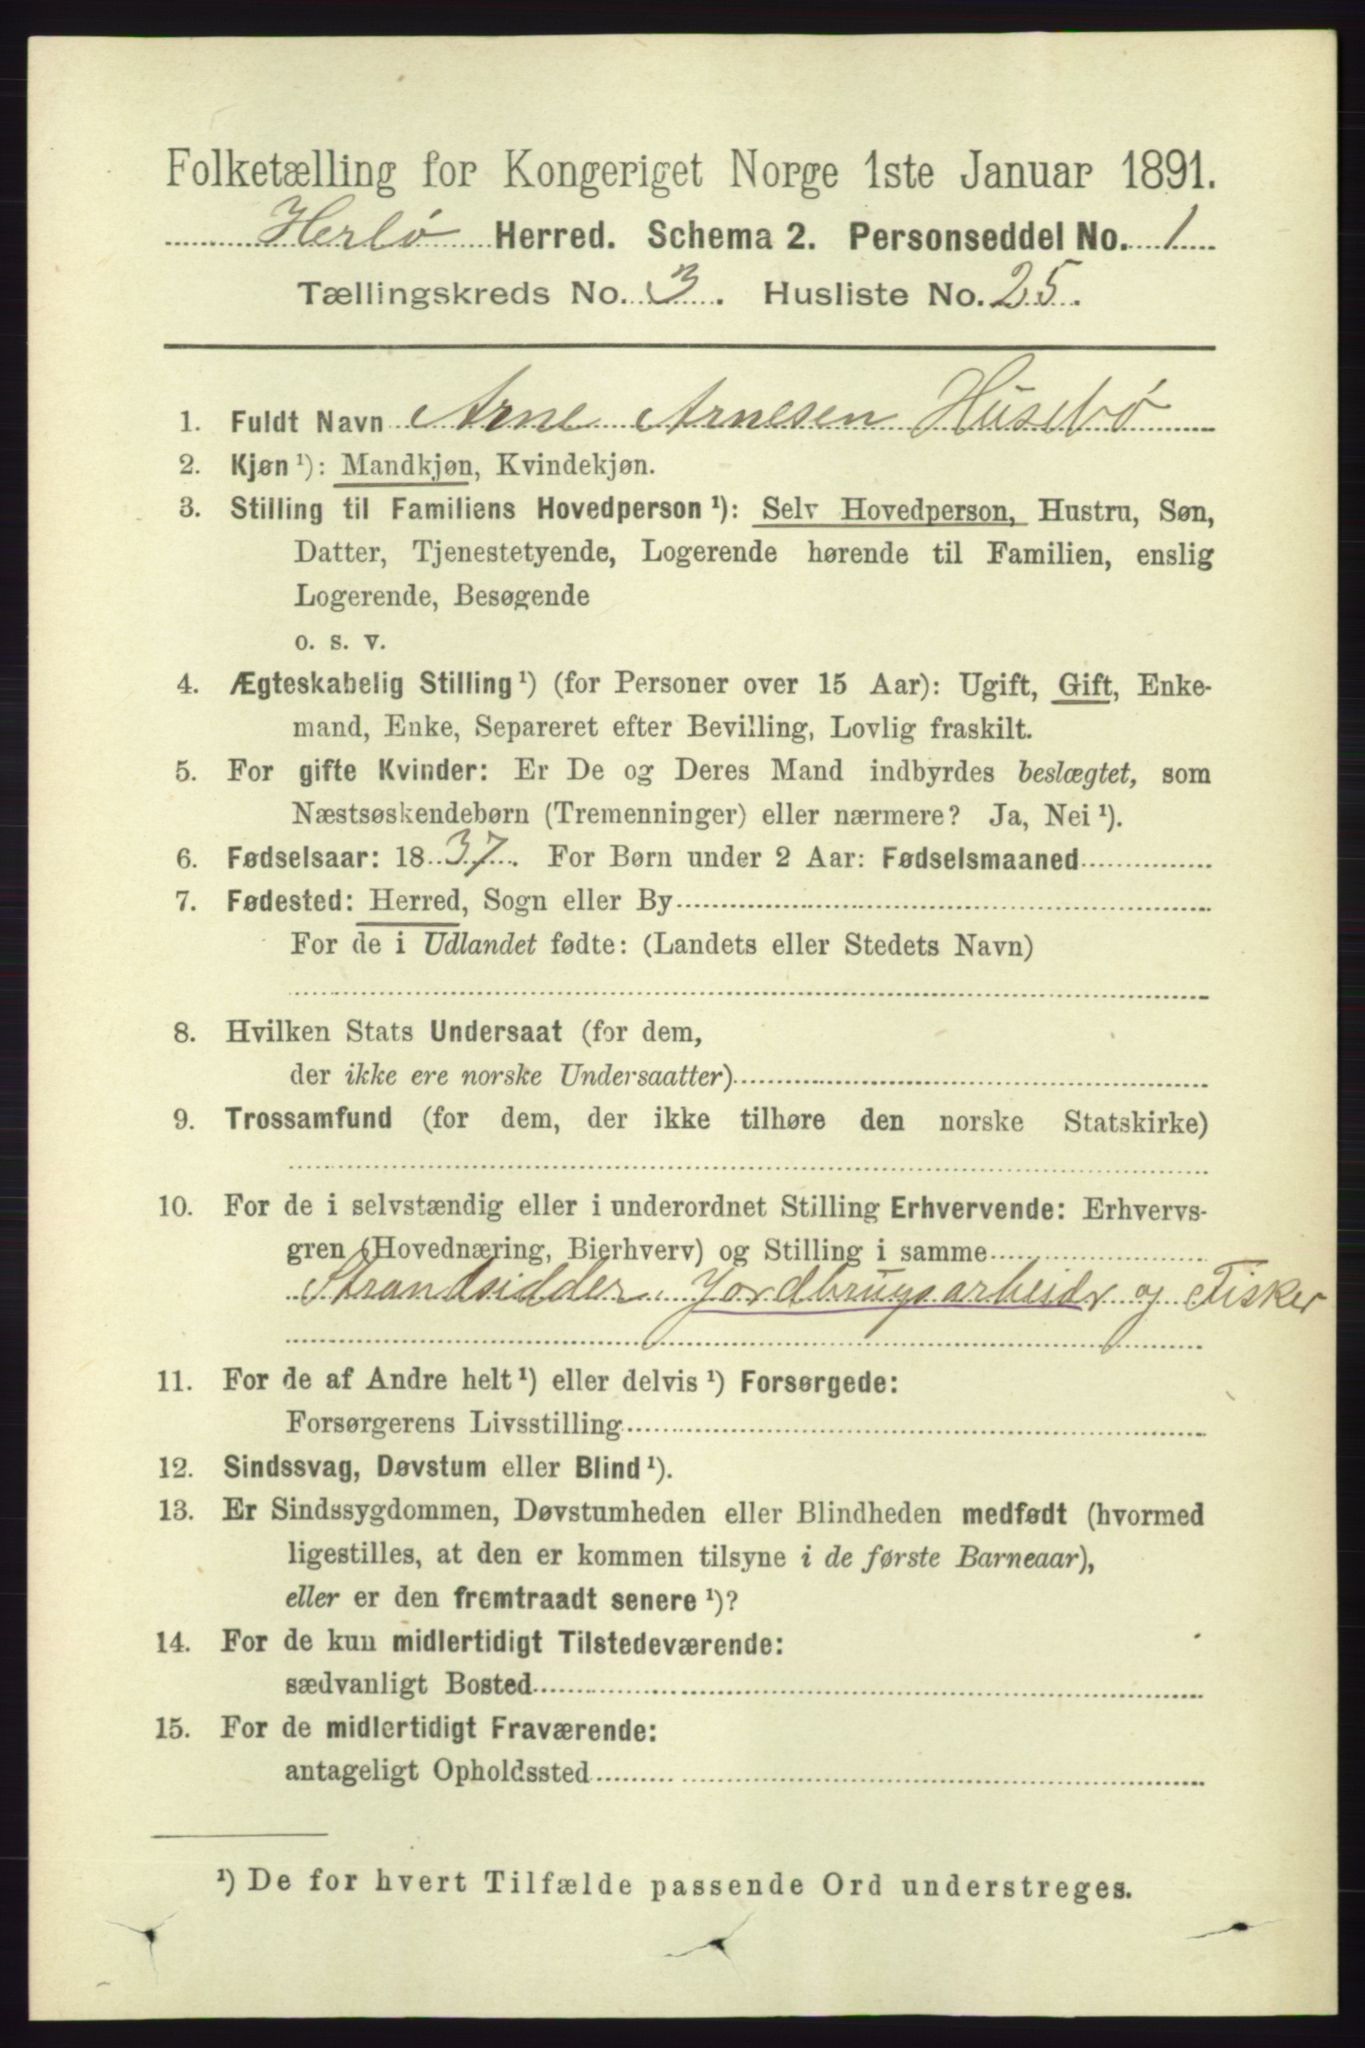 Folketælling for Kongeriget Norge 1ste Januar 1891.
Herlö Herred. Schema 2. Personseddel No. 1
Tællingskreds No. 3. Husliste No. 25.
1. Fuldt Navn Arne Arnesen Husebö
2. Kjøn ¹): Mandkjøn, Kvindekjøn.
3. Stilling til Familiens Hovedperson ¹): Selv Hovedperson, Hustru, Søn,
Datter, Tjenestetyende, Logerende hørende til Familien, enslig
Logerende, Besøgende
o. s. v.
4. Ægteskabelig Stilling ¹) (for Personer over 15 Aar): Ugift, Gift, Enke-
mand, Enke, Separeret efter Bevilling, Lovlig fraskilt.
5. For gifte Kvinder: Er De og Deres Mand indbyrdes beslægtet, som
Næstsøskendebørn (Tremenninger) eller nærmere? Ja, Nei ¹).
6. Fødselsaar: 1837. For Børn under 2 Aar: Fødselsmaaned
7. Fødested: Herred, Sogn eller By
For de i Udlandet fødte: (Landets eller Stedets Navn)
8. Hvilken Stats Undersaat (for dem,
der ikke ere norske Undersaatter)
9. Trossamfund (for dem, der ikke tilhøre den norske Statskirke)
10. For de i selvstændig eller i underordnet Stilling Erhvervende: Erhvervs-
gren (Hovednæring, Bierhverv) og Stilling i samme
Strandsidder, Jordbrugsarbeidr og Fisker
11. For de af Andre helt ¹) eller delvis ¹) Forsørgede:
Forsørgerens Livsstilling
12. Sindssvag, Døvstum eller Blind ¹).
13. Er Sindssygdommen, Døvstumheden eller Blindheden medfødt (hvormed
ligestilles, at den er kommen tilsyne i de første Barneaar),
eller er den fremtraadt senere ¹)?
14. For de kun midlertidigt Tilstedeværende:
sædvanligt Bosted
15. For de midlertidigt Fraværende:
antageligt Opholdssted
¹) De for hvert Tilfælde passende Ord understreges.